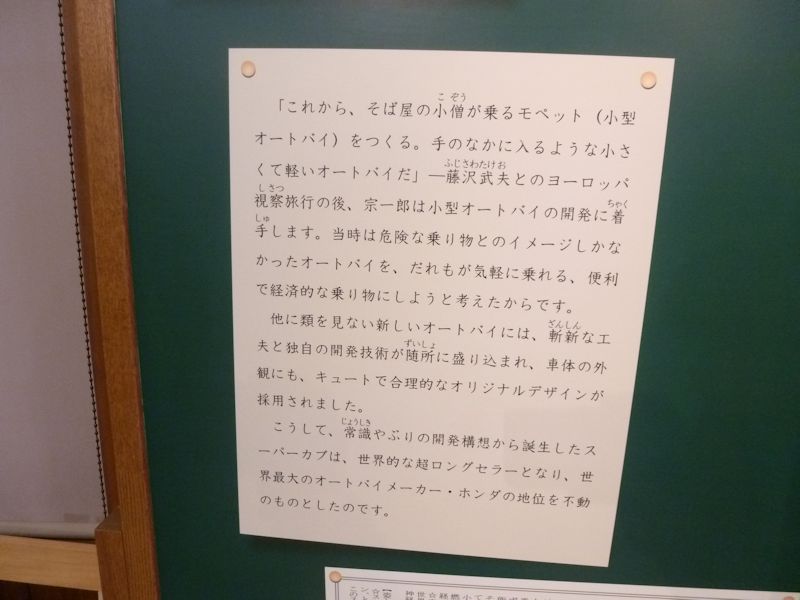 「これから、そば屋の小僧が乗るモペット（小型
オートバイ）をつくる。手のなかに入るような小さ
くて軽いオートバイだ」―藤沢武夫とのヨーロッパ
視察旅行の後、宗一郎は小型オートバイの開発に着
手します。当時は危険な乗り物とのイメージしかな
かったオートバイを、だれもが気軽に乗れる、便利
で経済的な乗り物にしようと考えたからです。
他に類を見ない新しいオートバイには、斬新な工
夫と独自の開発技術が随所に盛り込まれ、車体の外
観にも、キュートで合理的なオリジナルデザインが
採用されました。
こうして、常識やぶりの開発構想から誕生したス
ーパーカブは、世界的な超ロングセラーとなり、世
界最大のオートバイメーカー・ホンダの地位を不動
のものとしたのです。